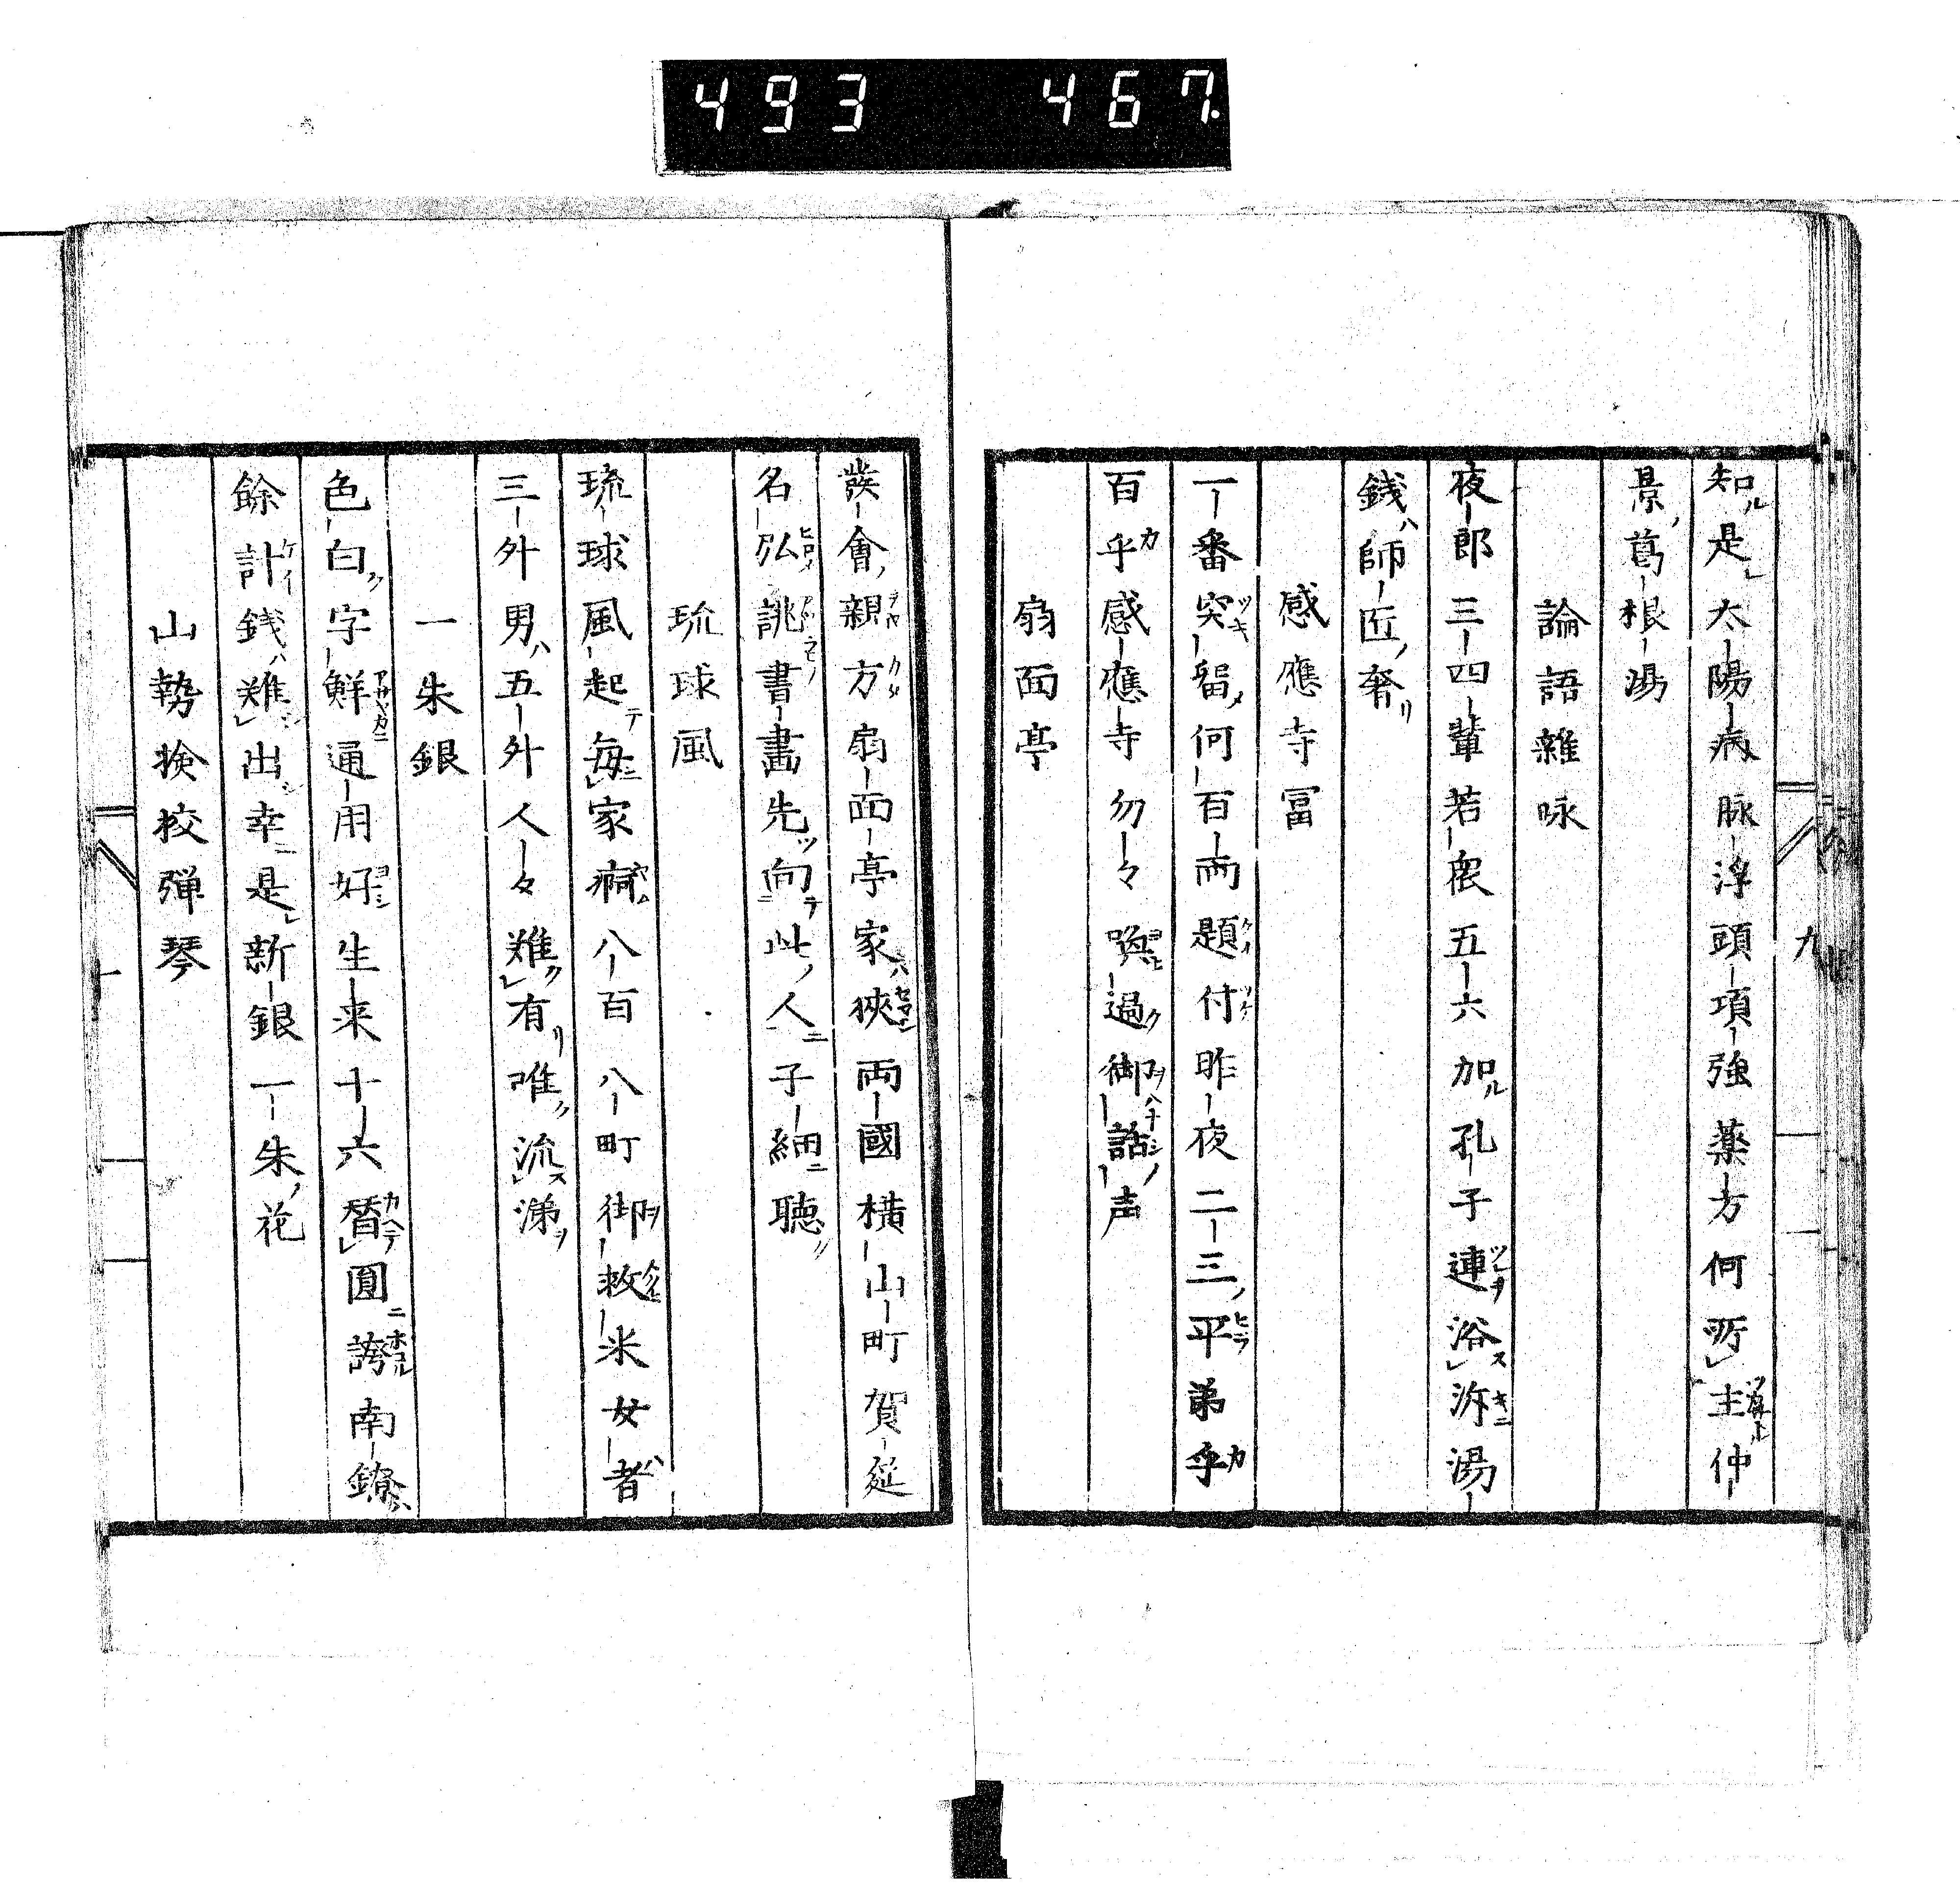 493 467.
知是太陽病脉浮頭項強薬方何所主仲
景葛根湯
論語雜咏
夜郎三四輩若衆五六加孔子連浴泝湯
錢師匠奢
感應寺冨
一番突留何百両題付昨夜二三平弟乎
百乎感應寺勿々喚過御話声
扇面亭
九
發會親方扇面亭家狹両國横山町賀莚
名弘誂書畫先向此人子細聴
琉球風
琉球風起毎家痾八百八町御救米女者
三外男五外人々難有唯流涕
一朱銀
色白字鮮通用好生来十六替圓誇南鐐
餘計銭難出幸是新銀一朱花
山勢撿挍弾琴
十